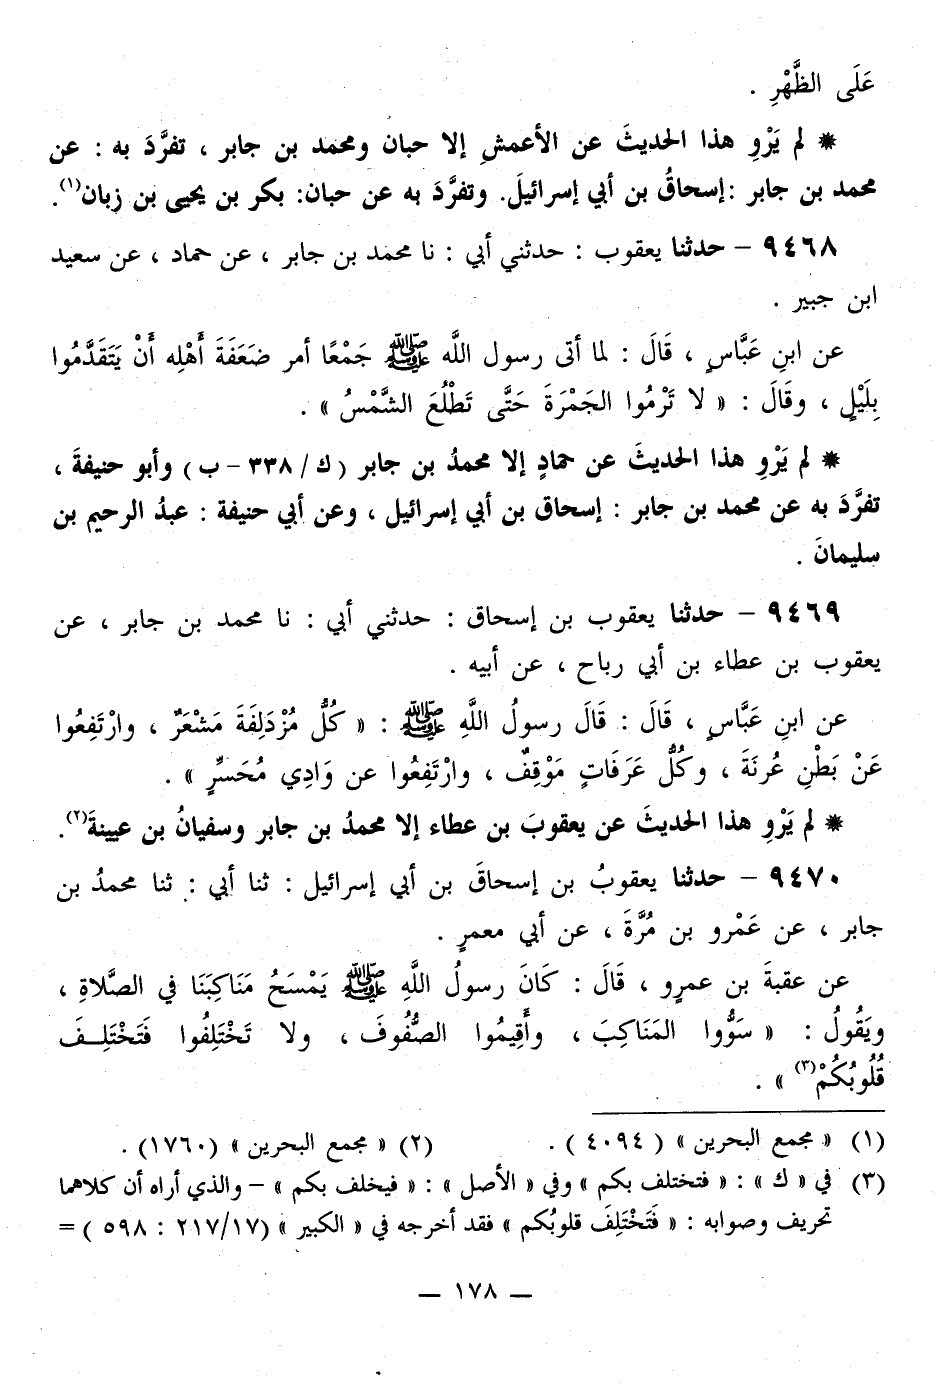 عَلَى الظَّهْرِ .
* لم يَرْوِ هذا الحديثَ عن الأعمشِ إلا حبان ومحمد بن جابر ، تفرَّدَ به : عن
محمد بن جابر :إسحاقُ بن أبي إسرائيلَ. وتفرَّدَ به عن حبان: بكر بن يحيى بن زبان(١).
٩٤٦٨ – حدثنا يعقوب : حدثني أبي : نا محمد بن جابر ، عن حماد ، عن سعيد
ابن جبير .
عن ابنِ عَبَّاسٍ ، قَالَ : لما أتى رسول اللَّه ﷺ جَمْعًا أمر ضَعَفَةَ أَهْلِه أَنْ يَتَقَدَّمُوا
بِلَيْلٍ ، وقَالَ : « لا تَرْمُوا الجَمْرَةَ حَتَّى تَطْلُعَ الشَّمْسُ » .
* لم يَرْوِ هذا الحديثَ عن حمادٍ إلا محمدُ بن جابر (ك/ ٣٣٨ – ب) وأبو حنيفةَ ،
تفرَّدَ به عن محمد بن جابر : إسحاق بن أبي إسرائيل ، وعن أبي حنيفة : عبدُ الرحيم بن
سليمانَ .
٩٤٦٩ – حدثنا يعقوب بن إسحاق : حدثني أبي : نا محمد بن جابر ، عن
يعقوب بن عطاء بن أبي رباح ، عن أبيه .
عن ابنِ عَبَّاسٍ ، قَالَ : قَالَ رسولُ اللَّهِ ﷺ : « كُلُّ مُزْدَلِفَةَ مَشْعَرٌ ، وارْتَفِعُوا
عَنْ بَطْنِ عُرنَةَ ، وكُلُّ عَرَفَاتٍ مَوْقِفٌ ، وارْتَفِعُوا عن وَادِي مُحَسِّرٍ » .
* لم يَرْوِ هذا الحديثَ عن يعقوبَ بن عطاء إلا محمدُ بن جابر وسفيانُ بن عيينةَ(٢).
٩٤٧٠ – حدثنا يعقوبُ بن إسحاقَ بن أبي إسرائيل : ثنا أبي : ثنا محمدُ بن
جابر ، عن عَمْرو بن مُرَّةَ ، عن أبي معمرٍ .
عن عقبةَ بن عمرٍو ، قَالَ : كَانَ رسولُ اللَّهِ ﷺ يَمْسَحُ مَنَاكِبَنَا في الصَّلاةِ ،
ويَقُولُ : « سَوُّوا المَنَاكِبَ ، وأَقِيمُوا الصُّفُوفَ ، ولا تَخْتَلِفُوا فَتَخْتَلِـفَ
قُلُوبُكُمْ(٣) » .
(١) « مجمع البحرين » ( ٤٠٩٤ ) . (٢) « مجمع البحرين » (١٧٦٠) .
(٣) في « ك » : « فتختلف بكم » وفي « الأصل » : « فيخلف بكم » – والذي أراه أن كلاهما
تحريف وصوابه : « فَتَخْتَلِفَ قلوبُكم » فقد أخرجه في « الكبير » (٢١٧/١٧ : ٥٩٨ ) =
— ١٧٨ —